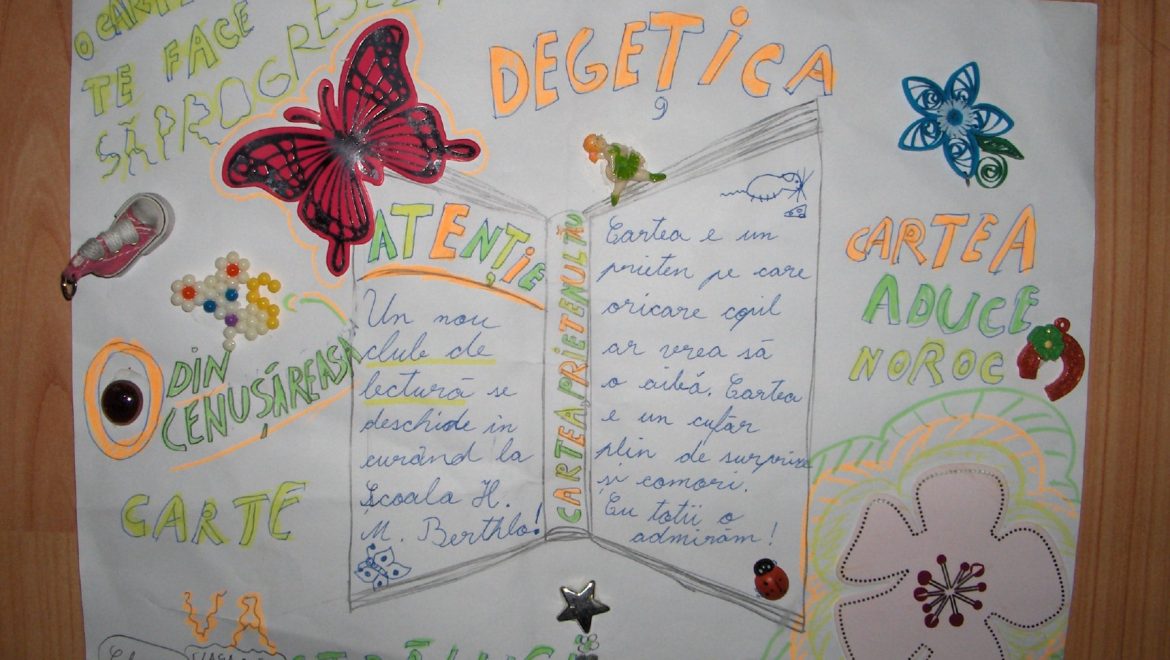 O CARTE
TE FACE
SĂ PROGRESEZ
DEGEȚICA
DIN
CENUȘĂREASA
CARTE
ATENȚIE
Un nou
club de
lectură se
deschide in
curând la
Școala H.
M. Berthlo!
CARTEA, PRIETENUL TĂU
Cartea e un
prieten pe care
oricare copil
ar vrea să
o aibă. Cartea
e un cufăr
plin de surprize
și comori.
Cu toții o
admirăm!
CARTEA
ADUCE
NOROC
VA